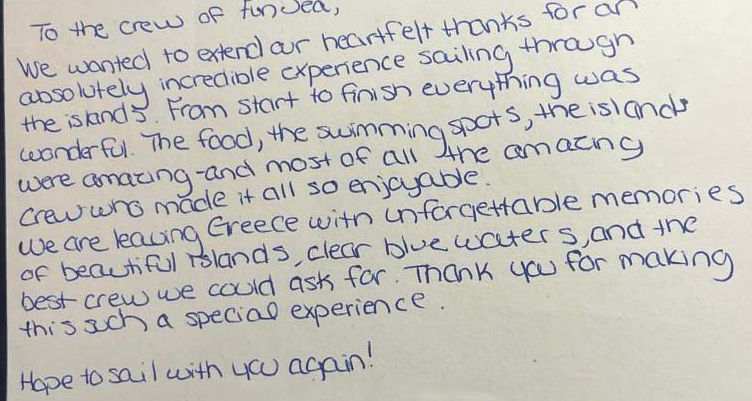 To the crew of Funsea,
We wanted to extend our heartfelt thanks for an
absolutely incredible experience sailing through
the islands. From start to finish everything was
wonderful. The food, the swimming spots, the islands
were amazing-and most of all the amazing
crew who made it all so enjoyable.
We are leaving Greece with unforgettable memories
of beautiful islands, clear blue waters, and the
best crew we could ask for. Thank you for making
this such a special experience.
Hope to sail with you again!